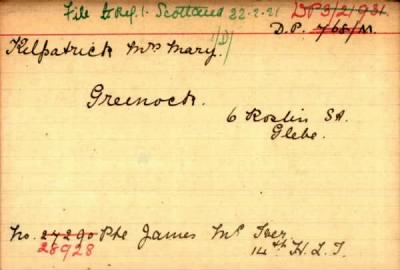 File to Ref. 1. Scotland 22.2.21
DP 3/2/931.
D.P. 768/M.
Kilpatrick Mrs Mary.
Greenock.
6 Roslin St.
Glebe.
No. 27290 Pte James Mc Iver
28928
14th H.L.I.